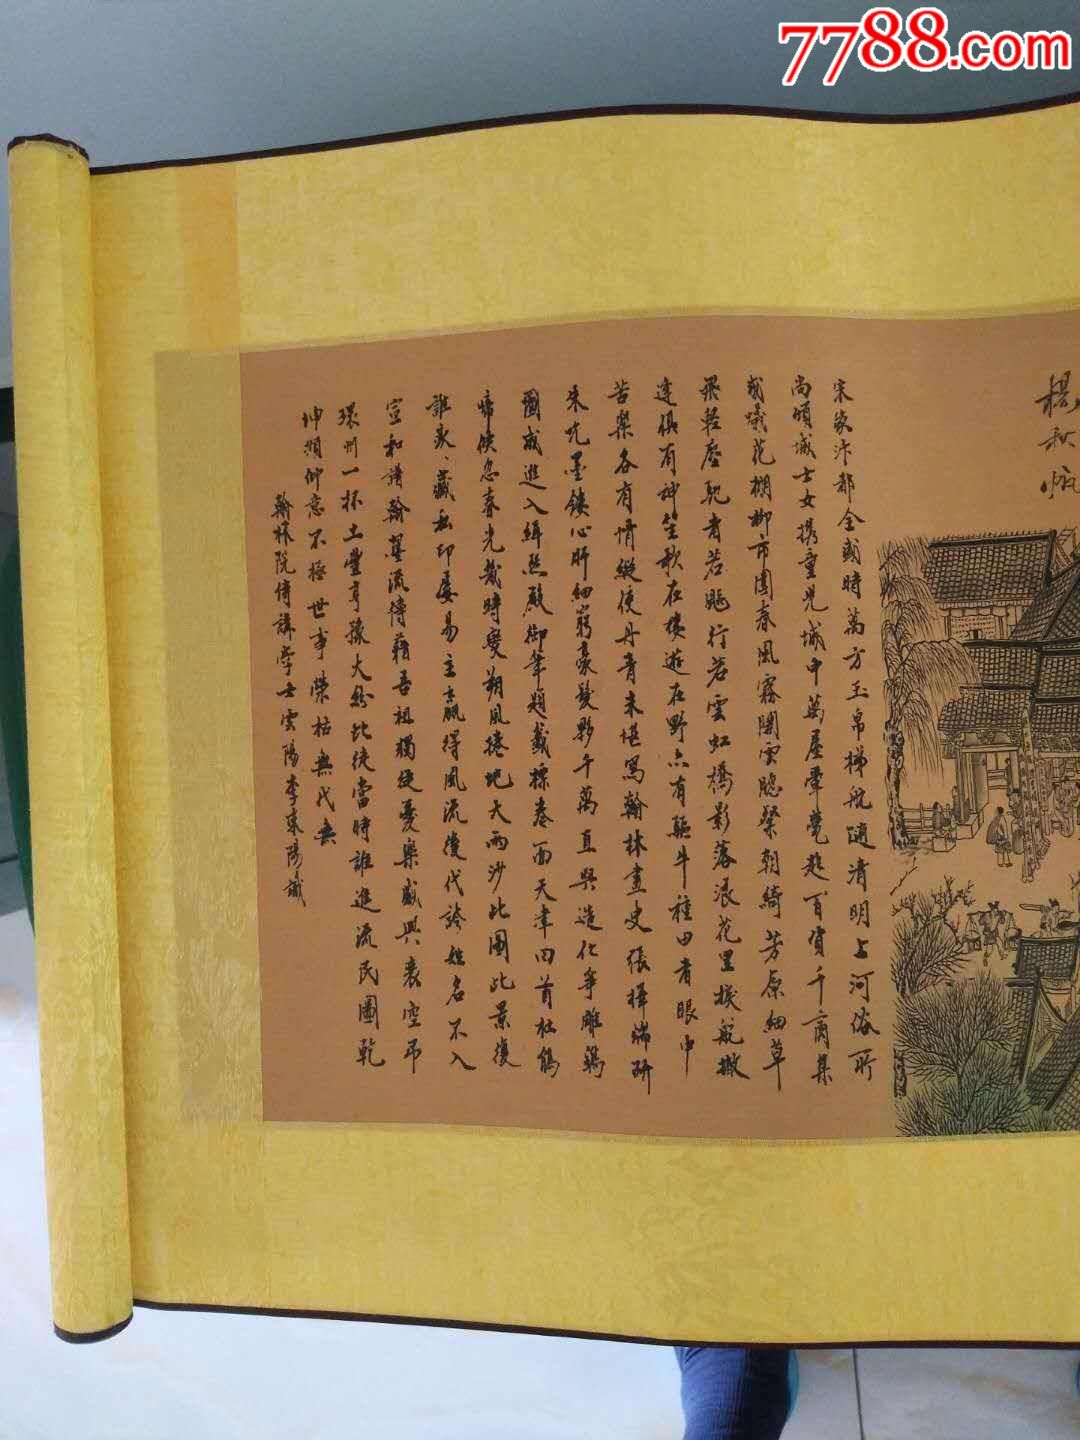 7788.com
宋家汴都全盛時萬方玉帛梯航隨清明上河俗所
尚傾城士女携童兒城中萬屋翬甍起百貨千商集
成蟻花棚柳市圍春風霧閣雲牕粲朝綺芳原細草
飛輕塵馳者若飈行若雲虹橋影落浪花里捩舵撇
篷俱有神笙歌在樓遊在野亦有驅牛種田者眼中
苦樂各有情縱使丹青未堪寫翰林畫史張擇端研
朱吮墨鏤心肝細窮毫髮夥千萬直與造化爭雕鐫
圖成進入緝熙殿御筆題籤標卷面天津回首杜鵑
啼倏忽春光幾時變朔風捲地天雨沙此圖此景復
誰家家藏私印屢易主贏得風流後代誇姓名不入
宣和譜翰墨流傳藉吾祖獨從憂樂感興衰空弔
環州一抔土豐亨豫大紛此徒當時誰進流民圖乾
坤頫仰意不極世事榮枯無代無
翰林院侍講學士雲陽李東陽識